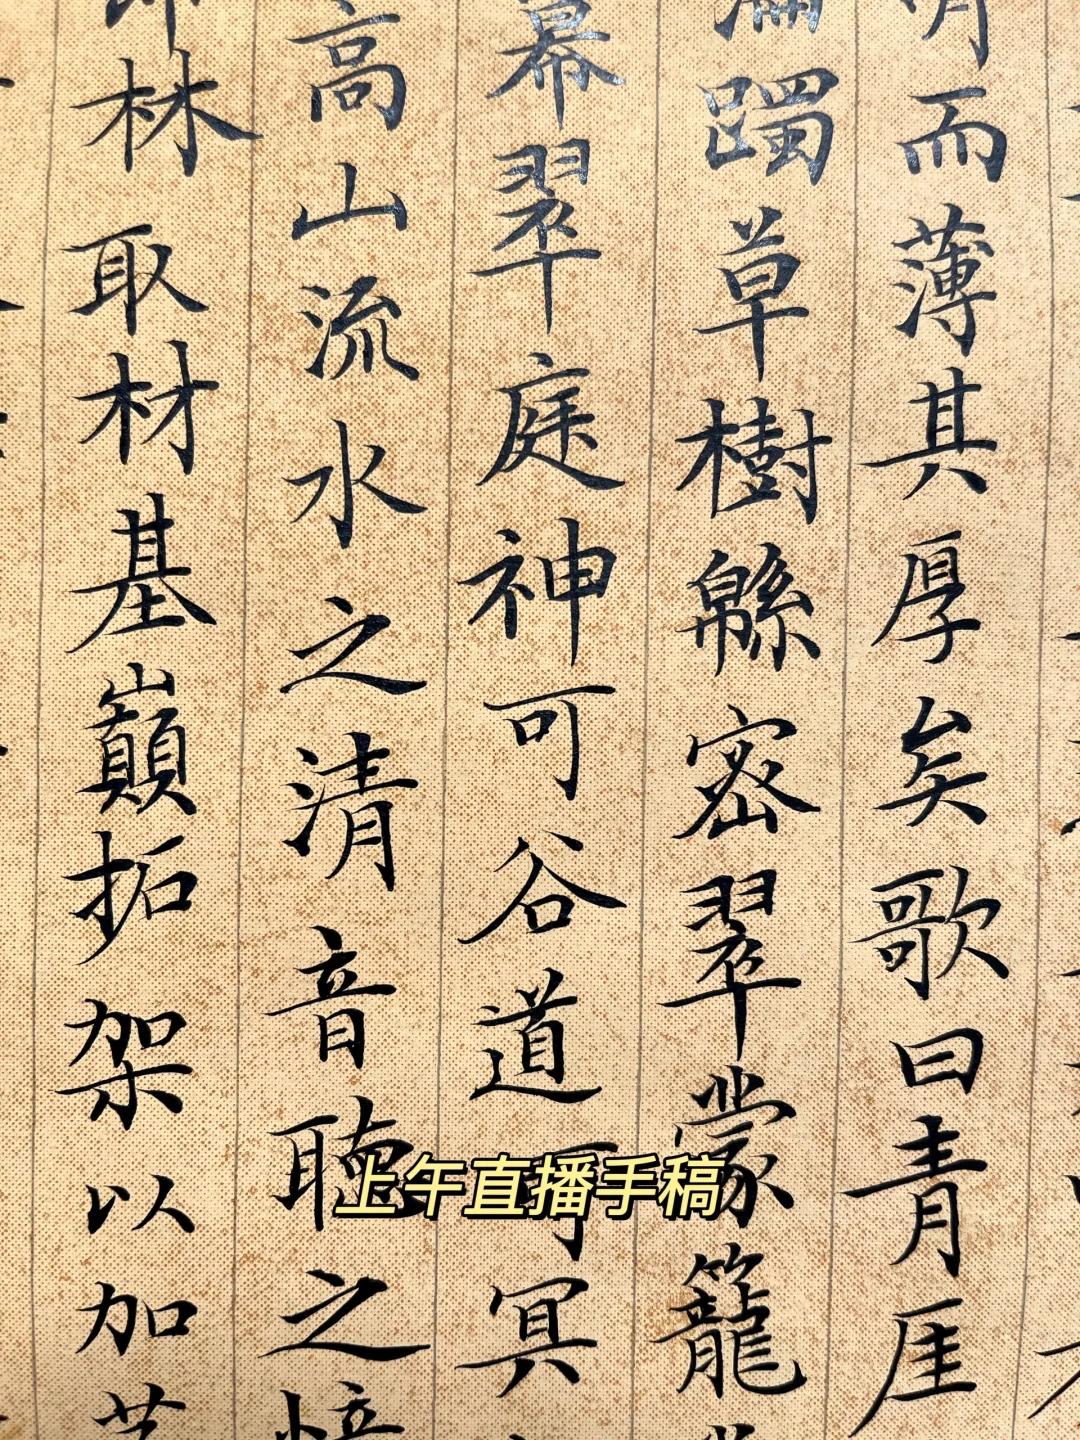 而薄其厚矣歌曰青厓
躅草樹緜密翠蒙籠
幕翠庭神可谷道可冥
高山流水之清音聽之
林取材基巔拓架以加
上午直播手稿